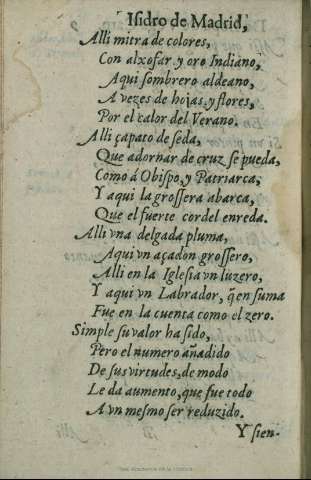 Isidro de Madrid,
Alli mitra de colores,
Con alxofar y oro Indiano,
Aqui sombrero aldeano,
A vezes de hojas, y flores,
Por el calor del Verano.
Alli çapato de seda,
Que adornar de cruz se pueda,
Como á Obispo, y Patriarca,
Y aqui la grossera abarca,
Que el fuerte cordel enreda.
Alli vna delgada pluma,
Aqui vn açadon grossero,
Alli en la Iglesia vn luzero,
Y aqui vn Labrador, q̃ en suma
Fue en la cuenta como el zero.
Simple su valor ha sido,
Pero el numero añadido
De sus virtudes, de modo
Le da aumento, que fue todo
A vn mesmo ser reduzido.
Y sien-